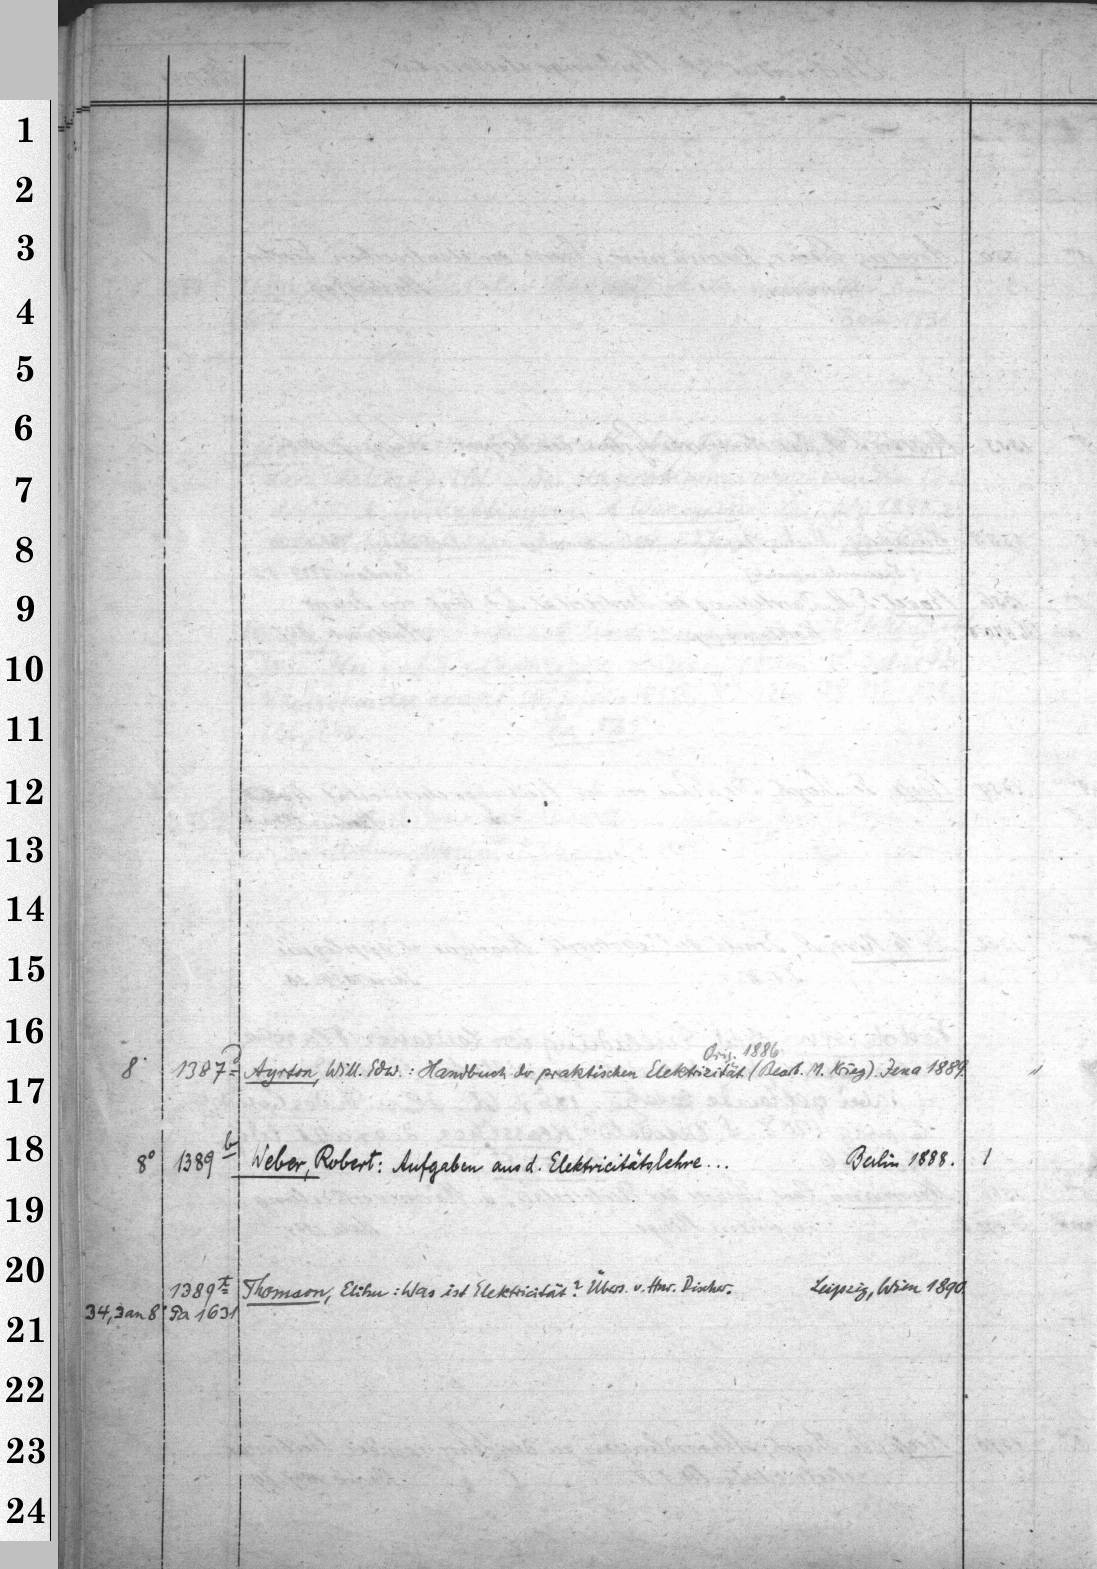 1
2
3
4
5
6
7
8
9
10
11
12
13
14
15
16
Orig. 1886
8° 1387 a Ayrton, Will. Edw.: Handbuch der praktischen Elektricität (Bearb. M. Krieg). Jena 1889. "
17
18
8° 1389 b Weber, Robert: Aufgaben aus d. Elektricitätslehre... Berlin 1888. 1
19
20
1389 t Thomson, Elihu: Was ist Elektricität? Übers. v. Hnr. Discher. Leipzig, Wien 1890.
34,3 an 8° Pa 1631
21
22
23
24